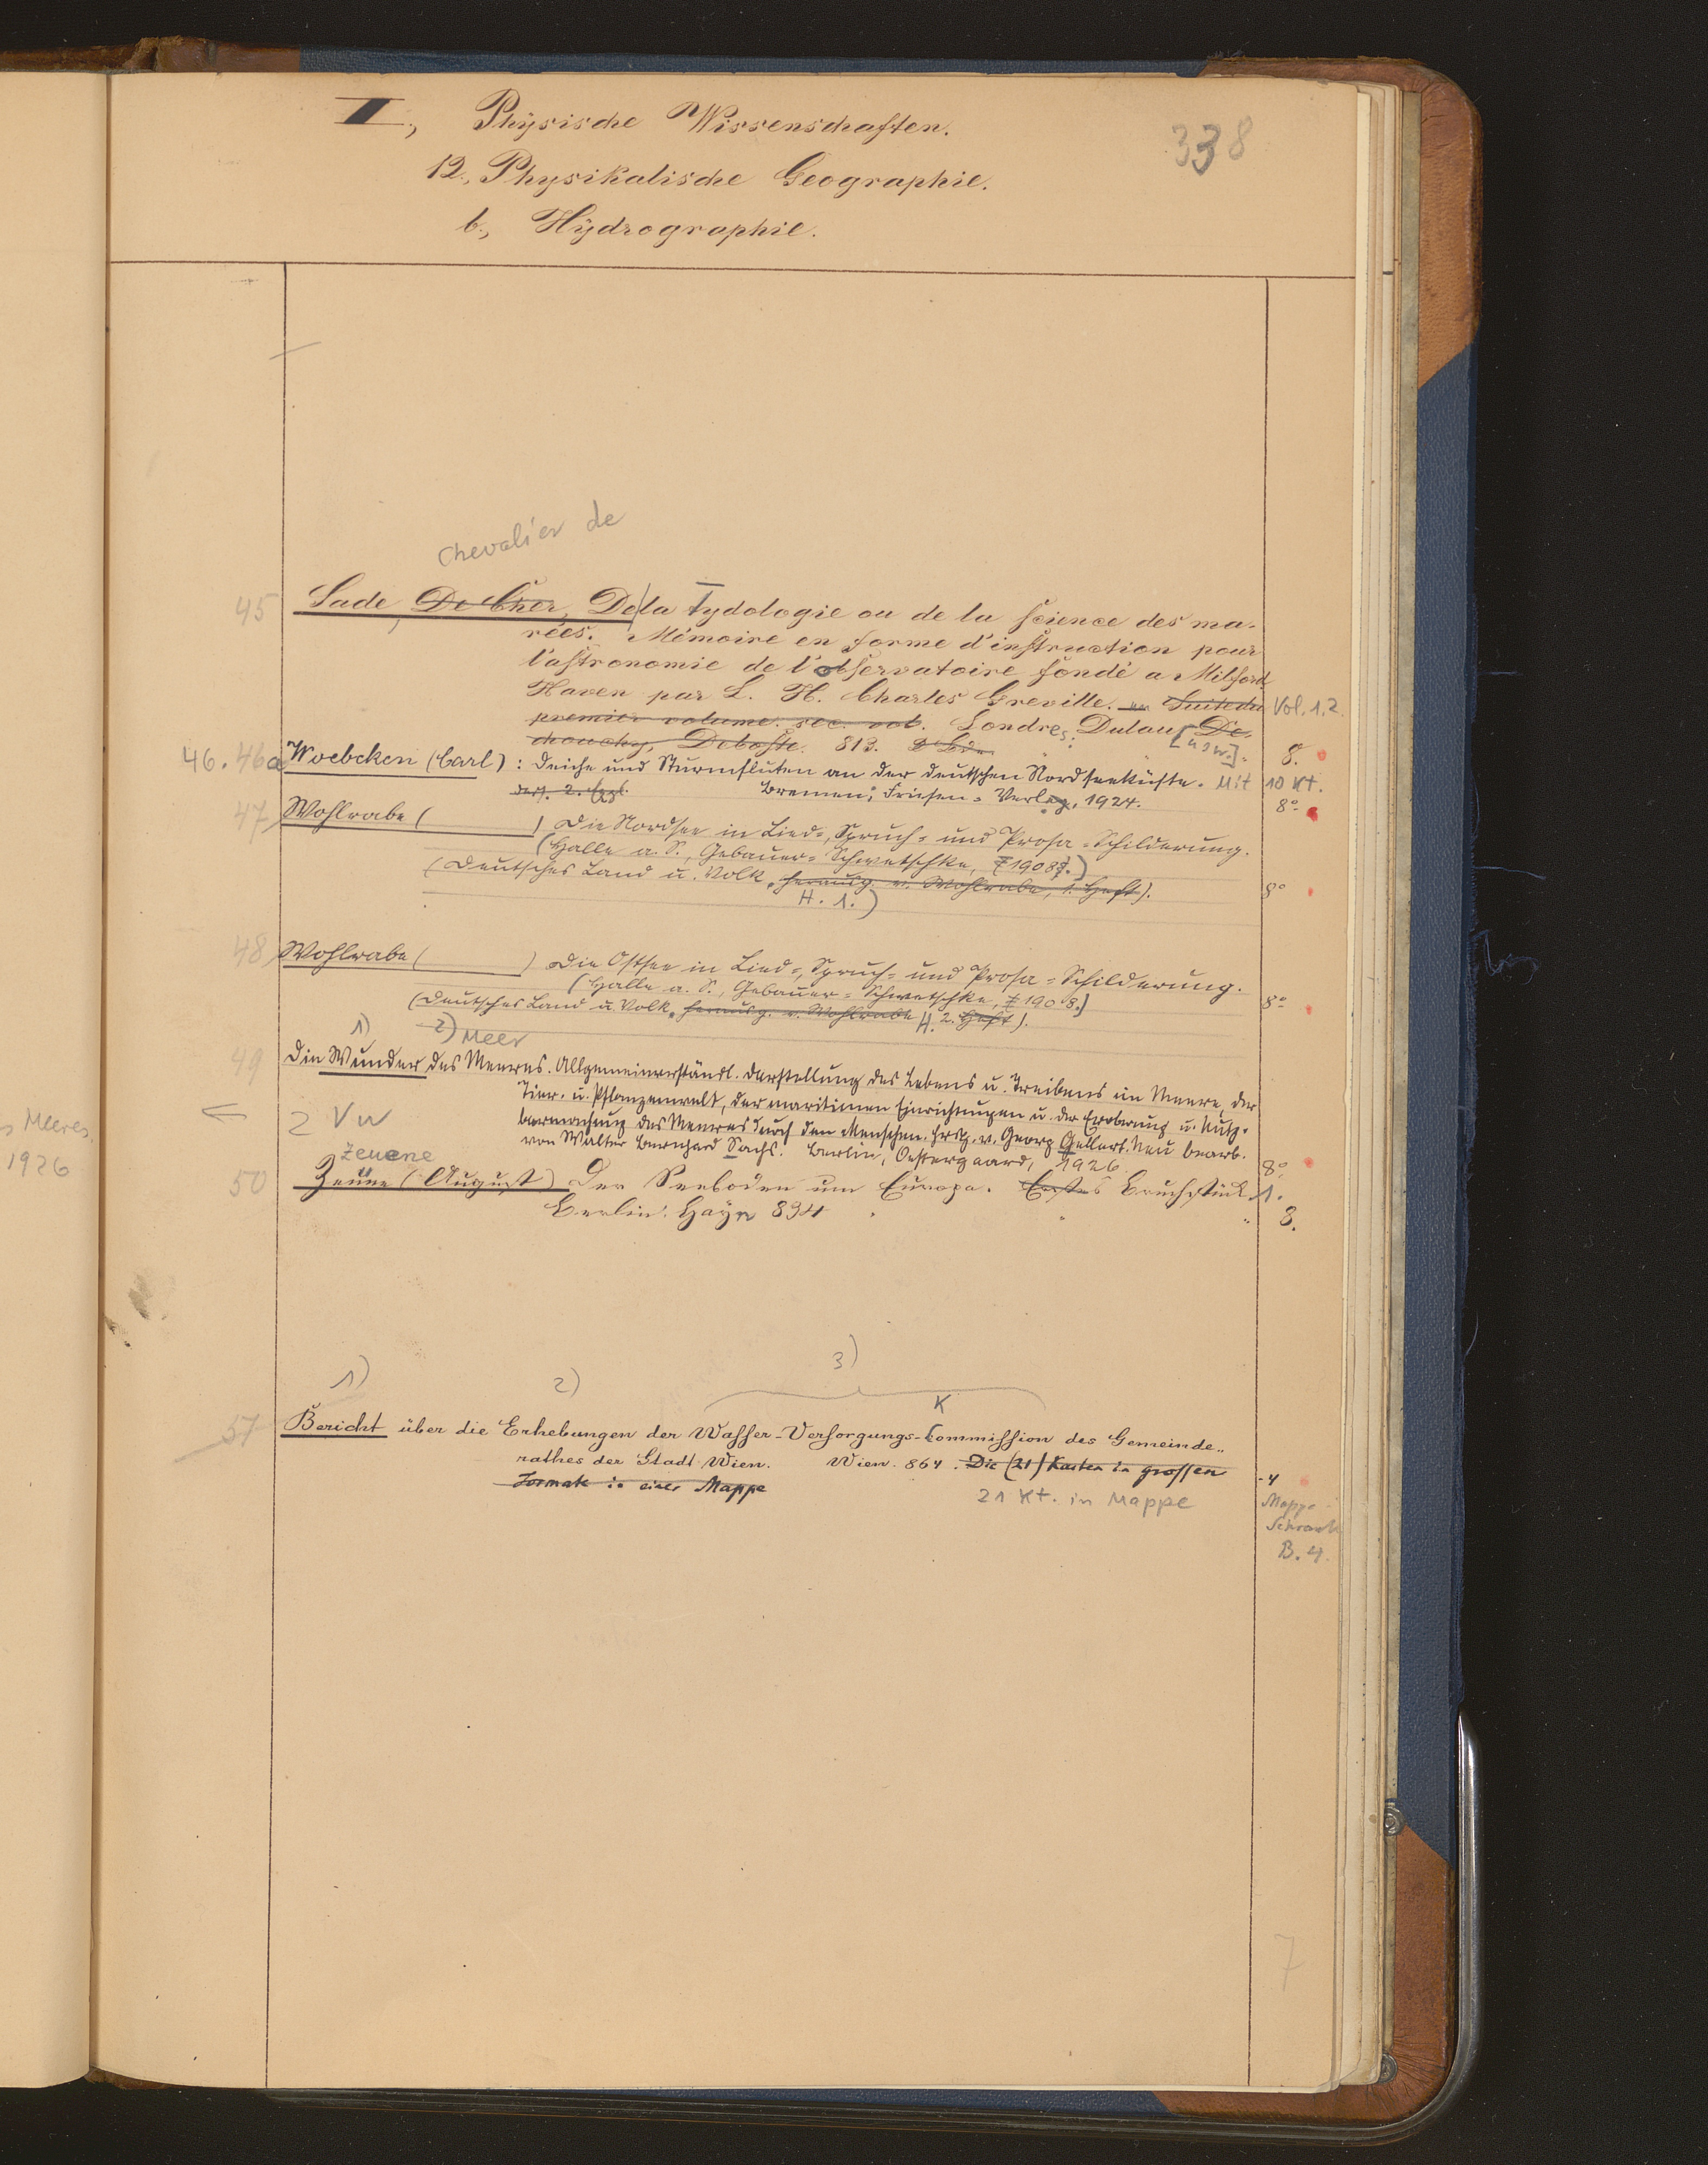 I., Physische Wissenschaften.
338
12., Physikalische Geographie.
b., Hydrographie.
Chevalier de
45 Sade, De Cher, De la Tydologie ou de la science des ma-
rées. Mémoire en forme d'instruction pour
l'astronomie de l'observatoire fondé a Milford
Haven par L. H. Charles Greville. Suite du Vol. 1.2.
premier volume. sec. vol. Londres: Dulau [usw.] De
chouchy, Deboffe. 813. 8.
46. 46a Woebcken (Carl): Deiche und Sturmfluten an der deutschen Nordseeküste. Mit 10 Kt.
Bremen: Friesen-Verlag, 1924. 8°
47 Wohlrabe ( ) Die Nordsee in Lied-, Spruch- und Prosa-Schilderung.
(Halle a. S., Gebauer-Schwetschke, 1908.)
(Deutsches Land u. Volk, herausg. v. Wohlrabe, 1. Heft). 8°
H. 1.)
48 Wohlrabe ( ) Die Ostsee in Lied-, Spruch- und Prosa-Schilderung.
(Halle a. S., Gebauer-Schwetschke, 1908.) 8°
(Deutsches Land u. Volk, herausg. v. Wohlrabe H. 2. Heft).
1) 2) Meer
49 Die Wunder des Meeres. Allgemeinverständl. Darstellung des Lebens u. Treibens im Meere, der
Tier- u. Pflanzenwelt, der maritimen Einrichtungen u. der Eroberung u. Nutz-
barmachung des Meeres durch den Menschen. Hrsg. v. Georg Gellert. Neu bearb.
von Walter Bernhard Sachs. Berlin, Oestergaard, 1926. 8°
2 Vw
Meeres
1926
Zeuene
50 Zeune (August) Der Seeboden um Europa. Erstes Bruchstück. 1.
Berlin. Hayn 834 8.
1) 2) 3)
K
51 Bericht über die Erhebungen der Wasser-Versorgungs-Commission des Gemeinde-
rathes der Stadt Wien. Wien. 864. Die (21) Karten in grossen
Formate in einer Mappe 4
21 Kt. in Mappe
Mappe
Schrank
B. 4.
7